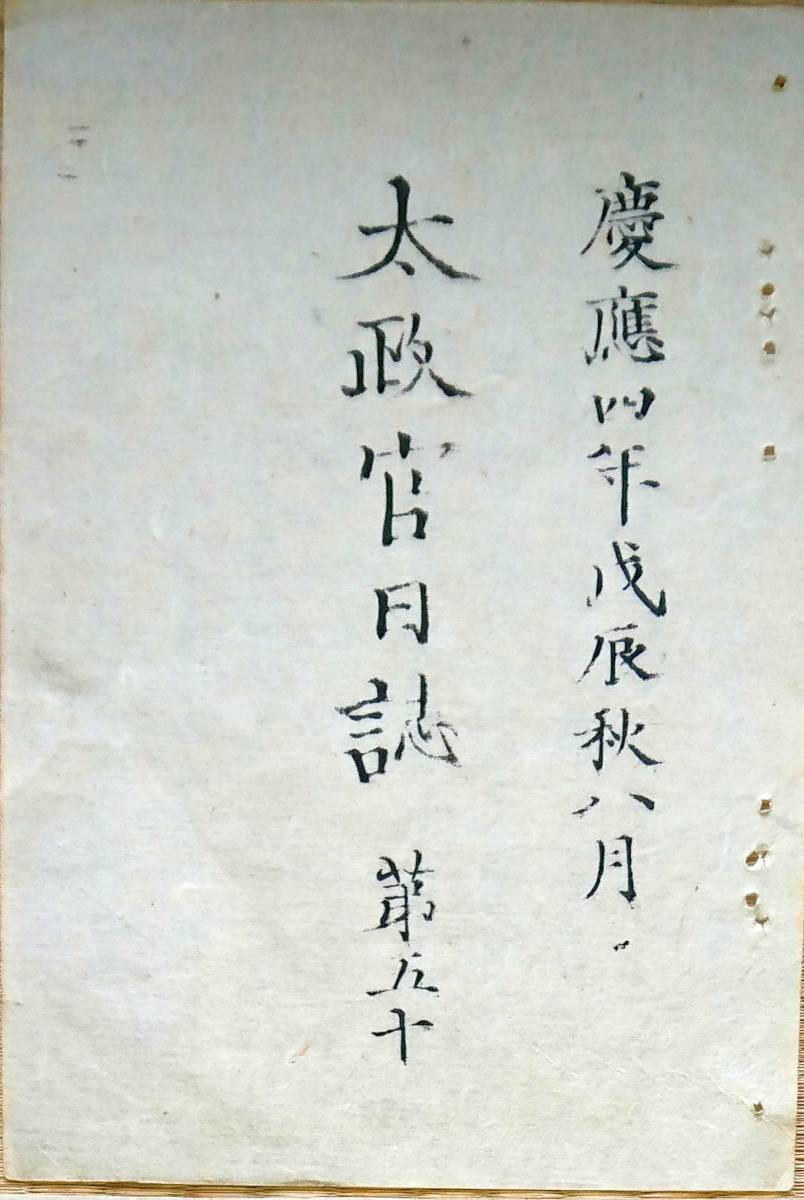 慶應四年戊辰秋八月
太政官日誌 第五十